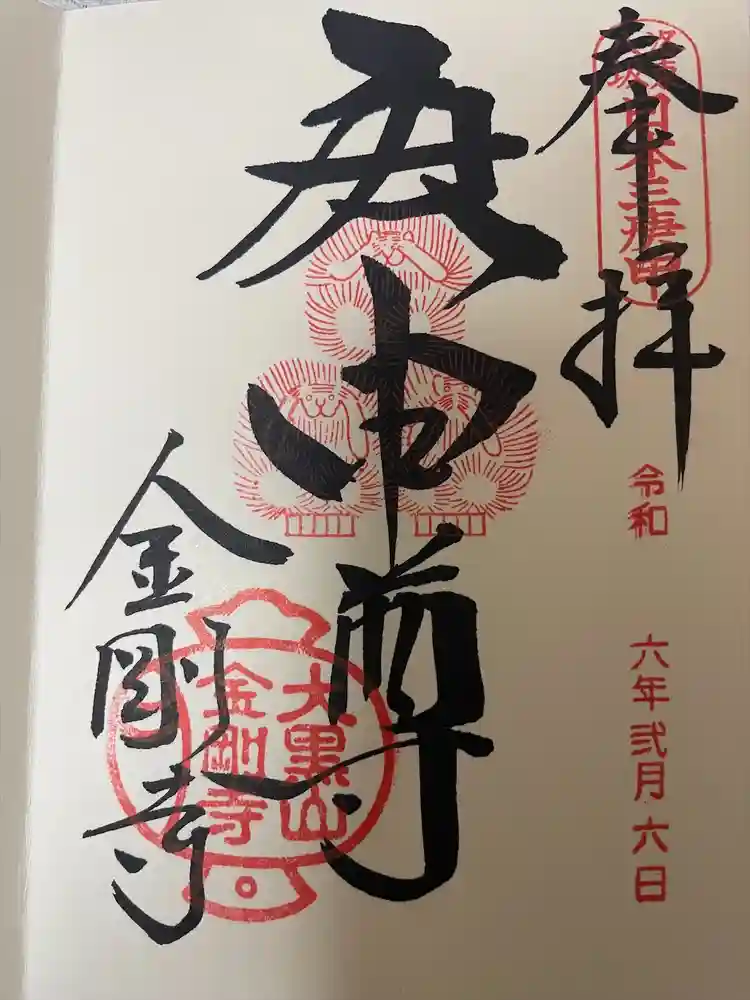 奉拝
日本三庚申
令和 六年 弐月 六日
庚申尊
大黒山
金剛寺
金剛寺